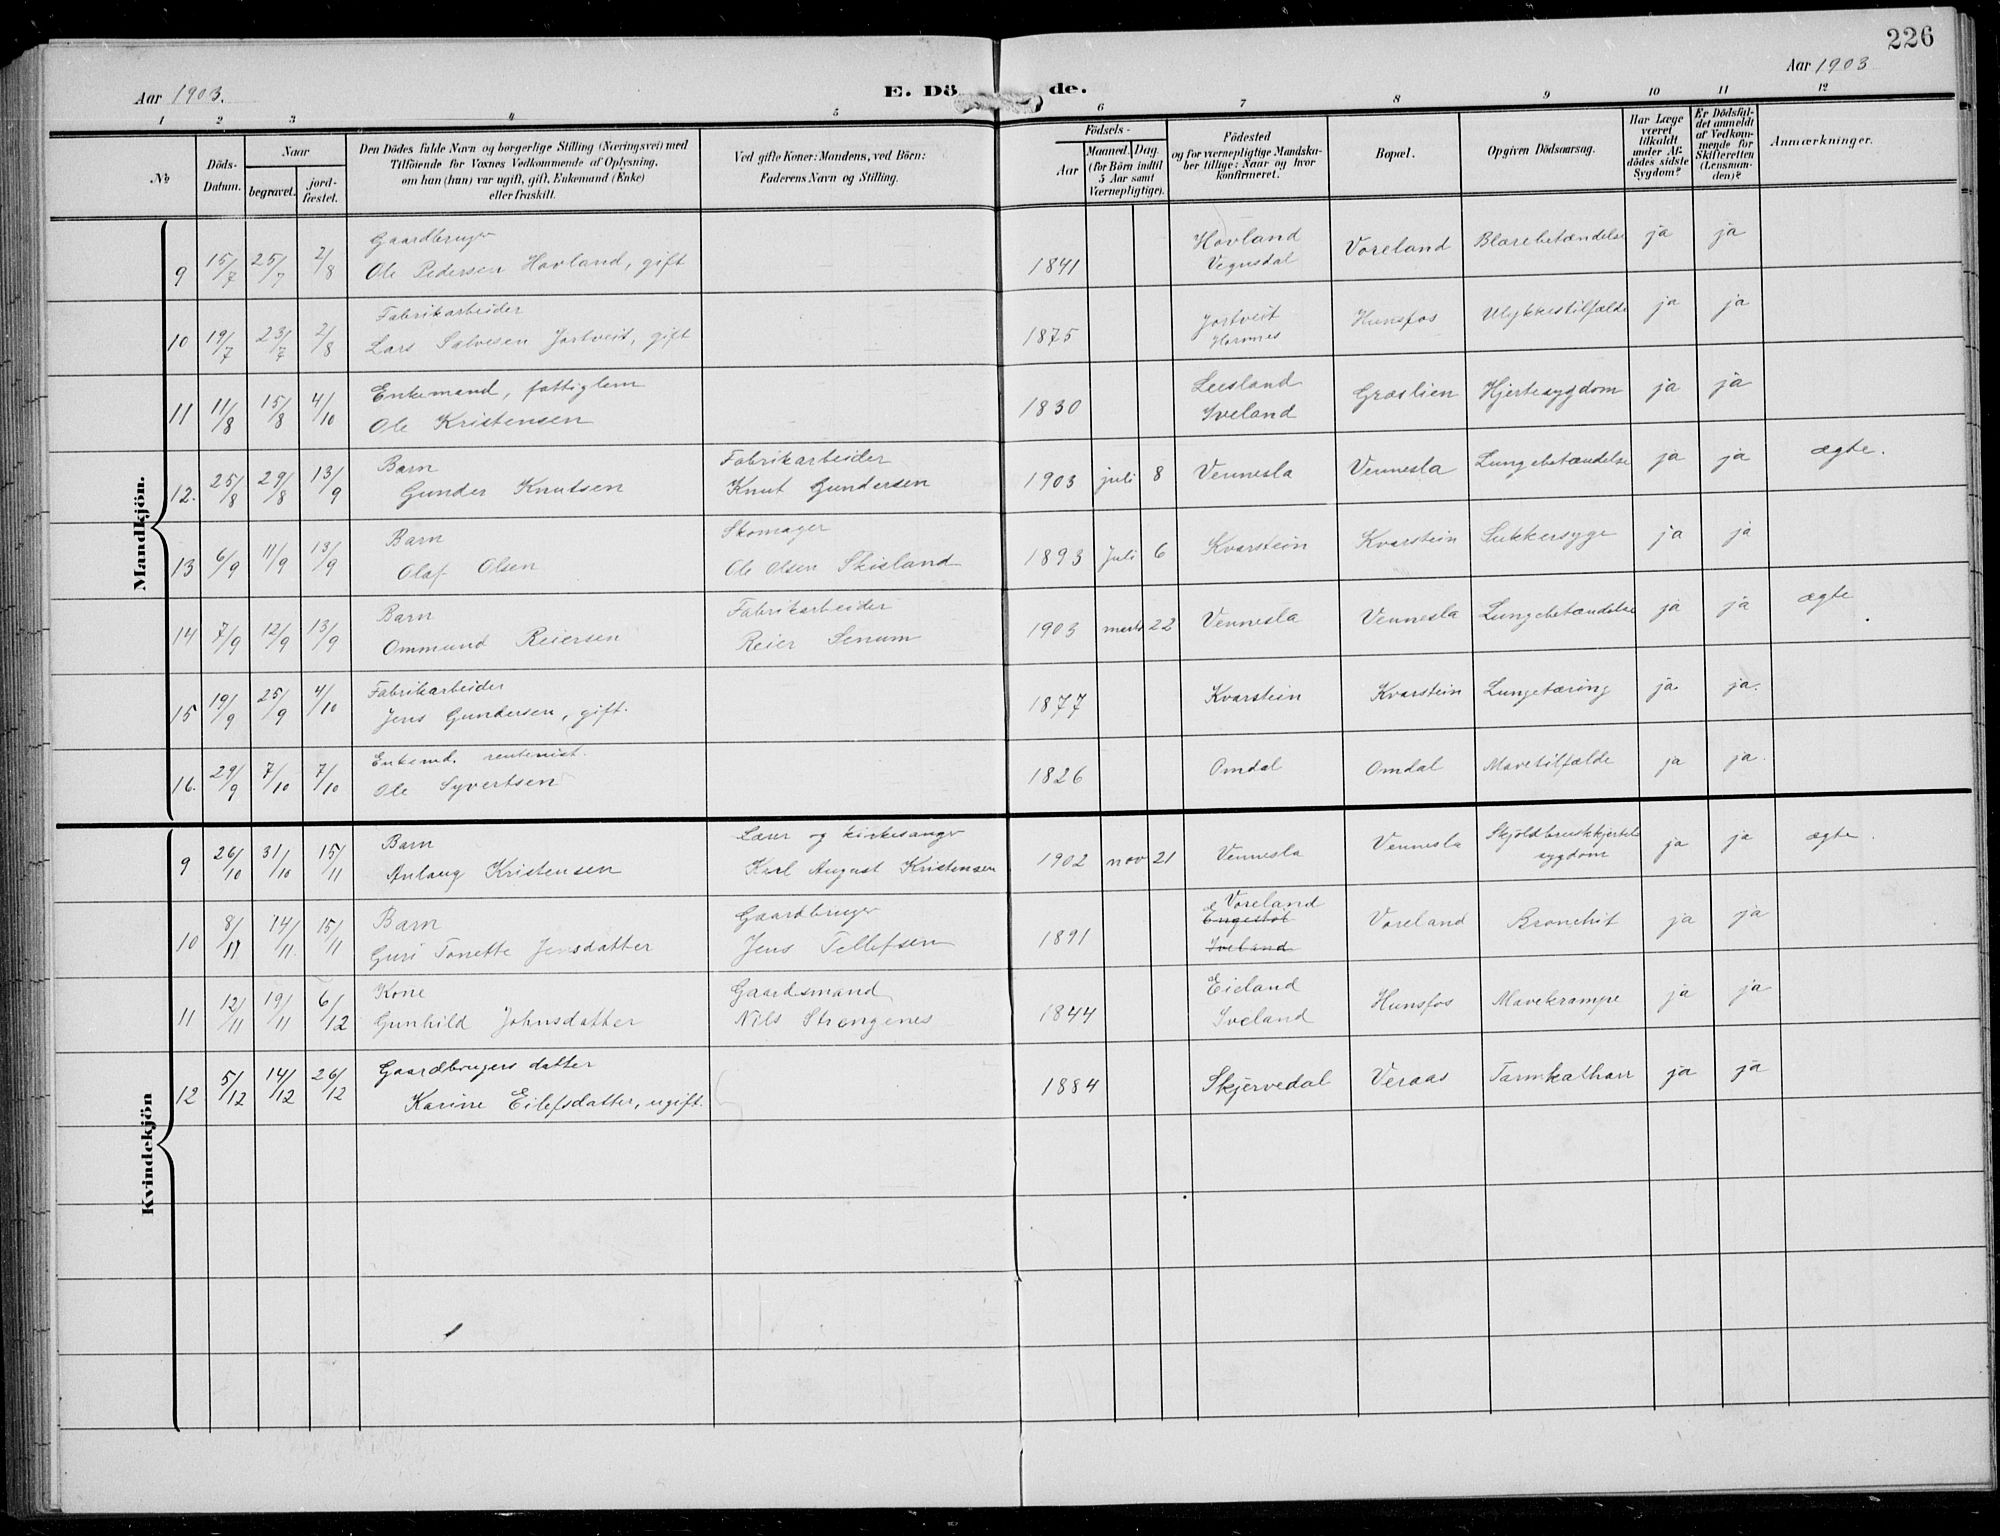 226
Aar 1903.
E. Dö de.
Aar 1903
1 2 3 4 5 6 7 8 9 10 11 12
No
Döds-Datum.
Naar
begravet.
jord-fæstet.
Den Dödes fulde Navn og borgerlige Stilling (Næringsvei) med
Tilföiende for Voxnes Vedkommende af Oplysning,
om han (hun) var ugift, gift, Enkemand (Enke)
eller fraskilt.
Ved gifte Koner: Mandens, ved Börn:
Faderens Navn og Stilling.
Födsels-
Aar
Maaned. Dag.
(for Börn indtil
5 Aar samt
Værnepligtige).
Födested
og for værnepligtige Mandska-
ber tillige: Naar og hvor
konfirmeret.
Bopæl.
Opgiven Dödsaarsag.
Har Læge
været
tilkaldt
under Af-
dödes sidste
Sygdom?
Er Dödsfal-
det anmeldt
af Vedkom-
mende for
Skifteretten
(Lensman-
den)?
Anmærkninger.
Mandkjön.
9 15/7 25/7 2/8 Gaardbruger
Ole Pedersen Hovland, gift 1841 Hovland
Vegusdal Voreland Blærebetændelse ja ja
10 19/7 23/7 2/8 Fabrikarbeider
Lars Salvesen Jortveit, gift 1875 Jortveit
Hornnes Hunsfos Ulykkestilfælde ja ja
11 11/8 15/8 4/10 Enkemand, fattiglem
Ole Kristensen 1830 Leesland
Iveland Graslien Hjertesygdom ja ja
12. 25/8 29/8 13/9 Barn
Gunder Knutsen Fabrikarbeider
Knut Gundersen 1903 juli 8 Vennesla Vennesla Lungebetændelse ja ja ægte.
13 6/9 11/9 13/9 Barn
Olaf Olsen Skomager
Ole Olsen Skisland 1893 Juli 6 Kvarstein Kvarstein Sukkersyge ja ja
14 7/9 12/9 13/9 Barn
Ommund Reiersen Fabrikarbeider
Reier Senum 1903 marts 22 Vennesla Vennesla Lungebetændelse ja ja ægte
15 19/9 25/9 4/10 Fabrikarbeider
Jens Gundersen, gift. 1877 Kvarstein Kvarstein Lungetæring ja ja.
16. 29/9 7/10 7/10 Enkemd. rentenist.
Ole Syvertsen 1826 Omdal Omdal Mavetilfælde ja ja.
Kvindekjön
9 26/10 31/10 15/11 Barn
Anlaug Kristensen Lærer og kirkesanger
Karl August Kristensen 1902 nov 21 Vennesla Vennesla Skjoldbruskkjertel
sygdom ja ja ægte.
10 8/11 14/11 15/11 Barn
Guri Tonette Jensdatter Gaardbruger
Jens Tellefsen 1891 Voreland
Engestöl
Iveland Voreland Bronchit ja ja
11 12/11 19/11 6/12 Kone
Gunhild Johnsdatter Gaardsmand
Nils Strengenes 1844 Eieland
Iveland Hunsfos Mavekrampe ja ja
12 5/12 14/12 26/12 Gaardbrugers datter
Karine Eilefsdatter, ugift. 1884 Skjervedal Veraas Tarmkatharr ja ja